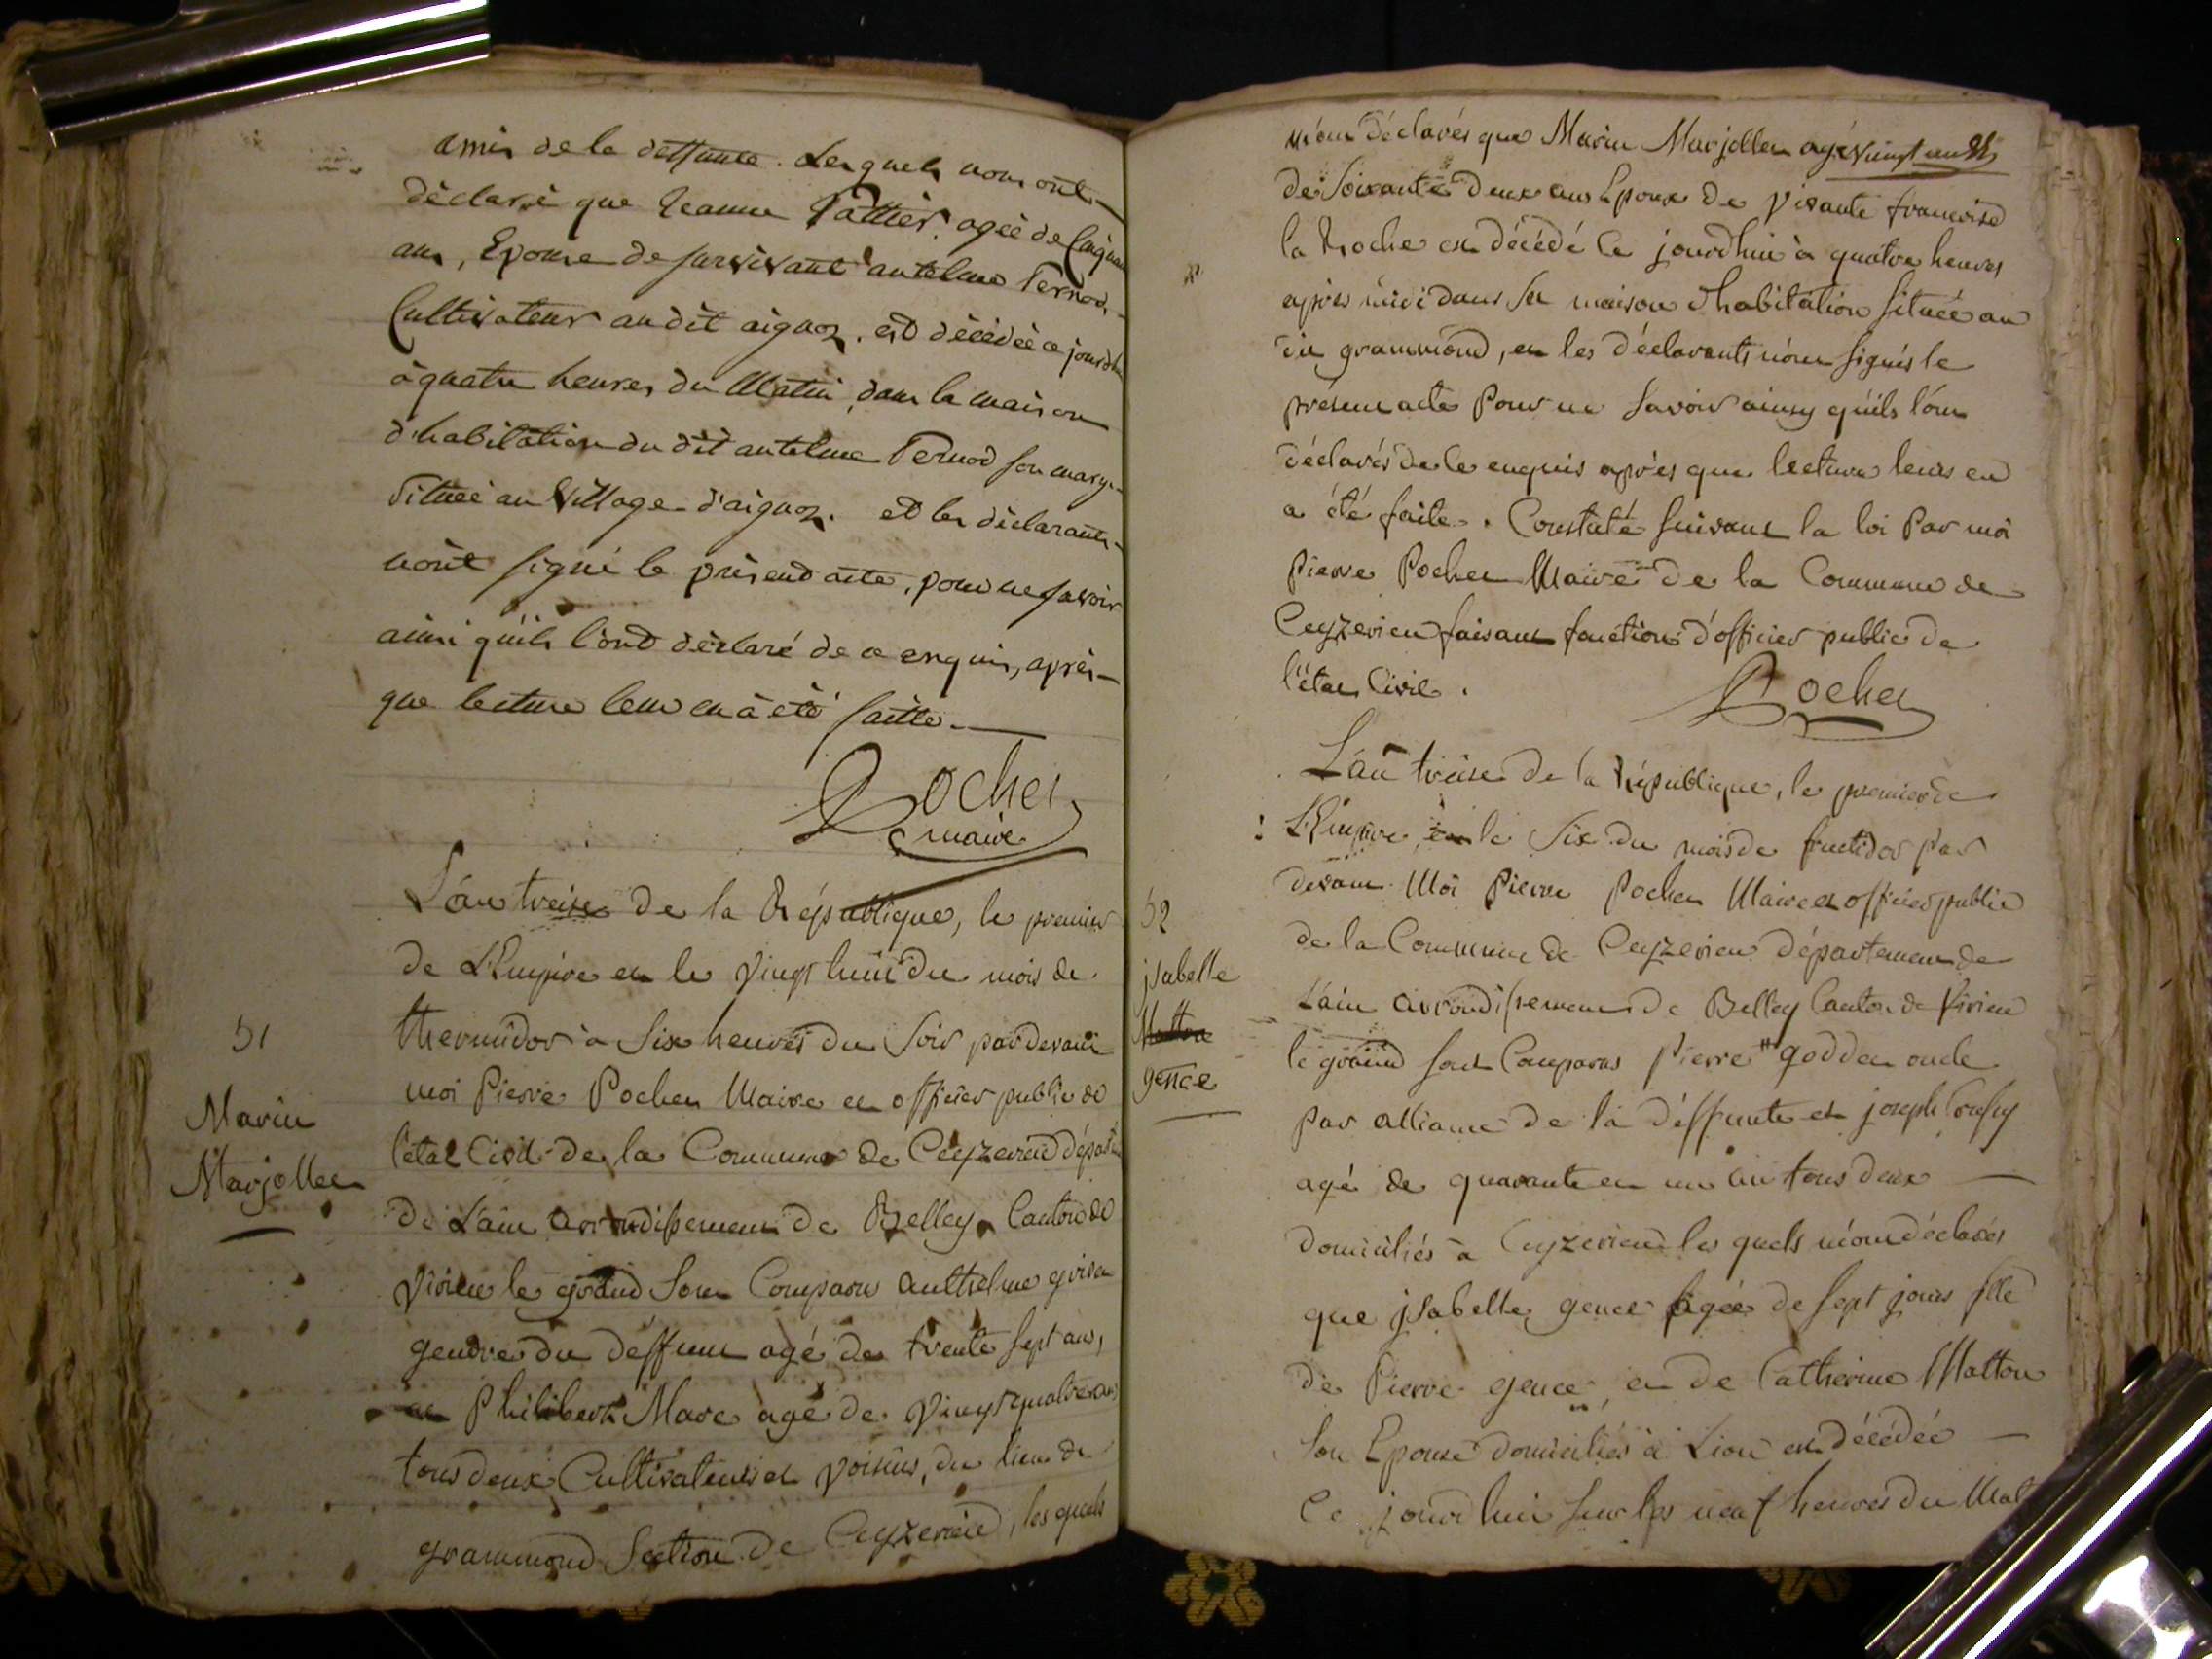 amis de la deffunte. Lesquels nous ont
déclaré que Jeanne Pattier agée de Cinquan
ans, Epouse de survivant antelme Pernod,
Cultivateur au dit aignoz, est décédée ce jourdh
à quatre heures du Matin, dans la maison
d'habitation du dit antelme Pernod son mary
Située au Village d'aignoz. et les déclarants
n'ont signé le présend acte, pour ne savoir
ainsi qu'ils l'ont déclaré de ce enquis, après
que lecture leur en à été faitte.
Pochet
maire
L'an treise de la République, le premier
de L'Empire et le vingt huit du mois de
thermidor à Six heures du Soir par devant
51
Marin
Marjollet
moi Pierre Pochet Maire et officier public de
l'état Civil de la Commune de Ceyzerieu départ
de L'ain arrondissement de Belley Canton de
Virieu le grand Sont Comparu Anthelme
gendre du deffunt agé de trente sept ans,
et Philibert Mare agé de Vingt quatre ans
tous deux Cultivateurs et voisins, du lieu de
grammond Section de Ceyzerieu, les quels
m'ont déclarés que Marin Marjollet agé
de Soixante deux ans Epoux de vivante francoise
la Roche est décédé Ce jourdhui à quatre heures
après midi dans Sa maison d'habitation Située au
dit grammond, et les déclarants n'ont signés le
présent acte Pour ne Savoir ainsy qu'ils l'ont
déclarés de le enquis après que lecture leurs en
a été faite. Constaté suivant la loi Par moi
Pierre Pochet Maire de la Commune de
Ceyzerieu faisant fonction d'officier public de
l'état Civil.
Pochet
L'an treise de la République, le premier de
L'Empire, et le Six du mois de fructidor Par
devant Moi Pierre Pochet Maire et officier public
52
jsabelle
gence
de la Commune de Ceyzerieu département de
L'ain arrondissement de Belley Canton de Virieu
le grand sont Comparus Pierre goddet oncle
par alliance de la deffunte et joseph
agé de quarante et un an tous deux
domiciliés à Ceyzerieu les quels m'ont déclarés
que jsabelle gence agée de sept jours fille
de Pierre gence, et de Catherine Matton
Son Epouse domiciliés à Lion est décédée
Ce jourdhui sur les neuf heures du Mat